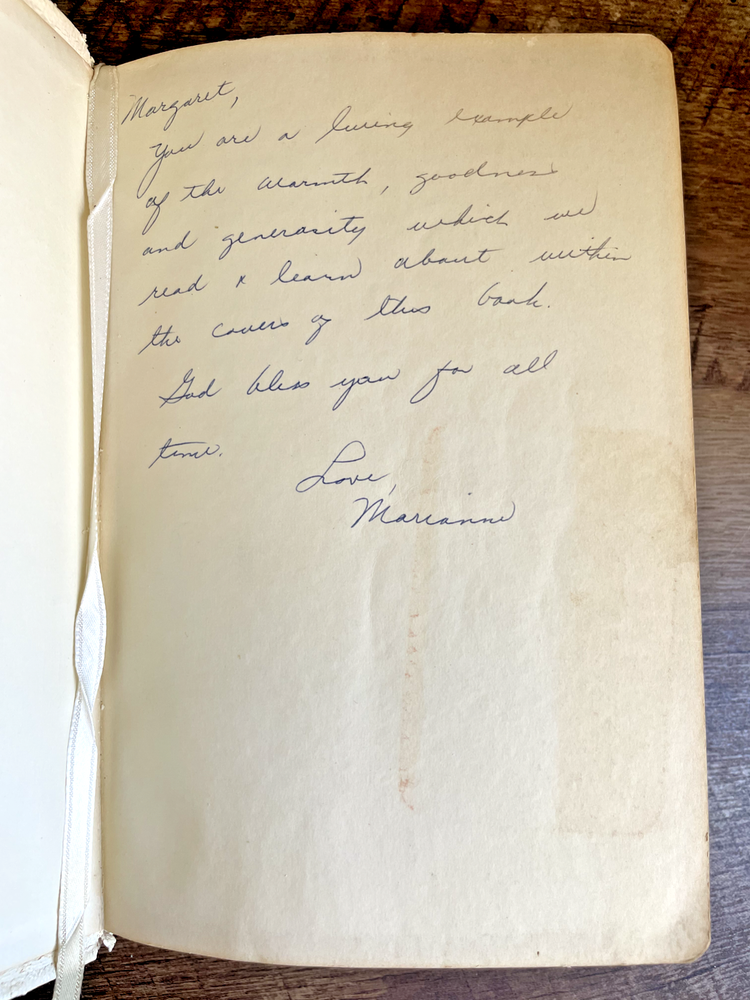 Margaret,
You are a living example
of the warmth, goodness
and generosity which we
read & learn about within
the covers of this book.
God bless you for all
time.
Love,
Marianne